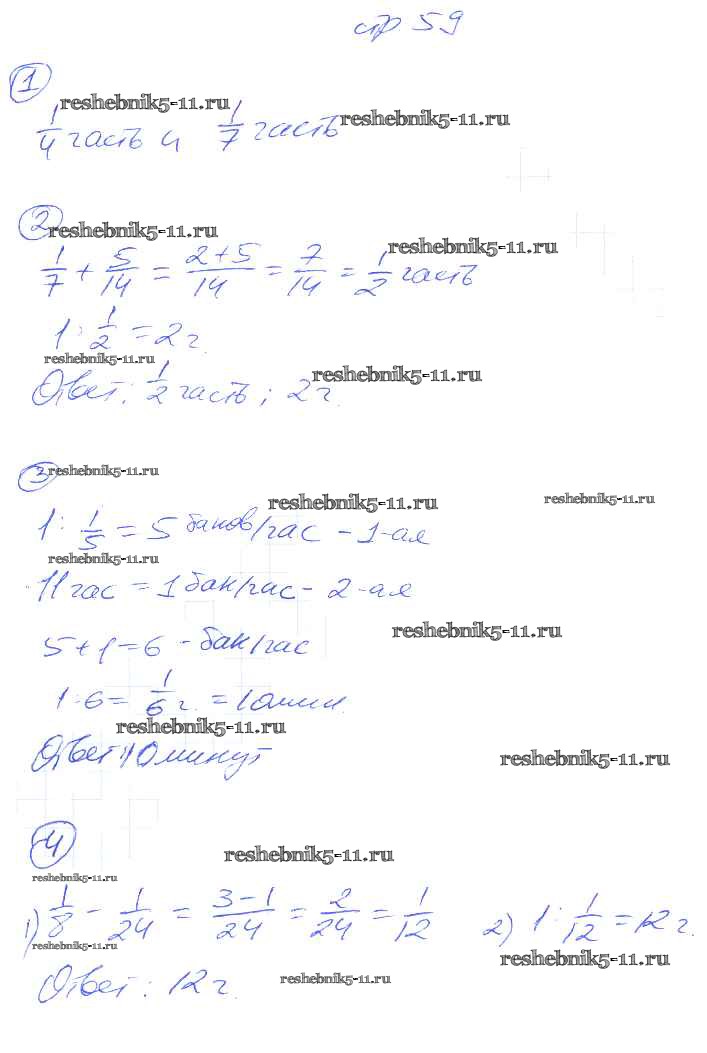 стр 59
1
reshebnik5-11.ru
reshebnik5-11.ru
1/4 часть и 1/7 часть
2
reshebnik5-11.ru
reshebnik5-11.ru
1/7 + 5/14 = 2+5/14 = 7/14 = 1/2 часть
1 : 1/2 = 2 г.
reshebnik5-11.ru
reshebnik5-11.ru
Ответ: 1/2 часть; 2 г.
3
reshebnik5-11.ru
reshebnik5-11.ru
reshebnik5-11.ru
1 : 1/5 = 5 баков/час – 1-ая
reshebnik5-11.ru
11 час = 1 бак/час – 2-ая
reshebnik5-11.ru
5 + 1 = 6 – бак/час
1 : 6 = 1/6 г. = 10 мин.
reshebnik5-11.ru
Ответ 10 минут
reshebnik5-11.ru
4
reshebnik5-11.ru
reshebnik5-11.ru
1) 1/8 – 1/24 = 3–1/24 = 2/24 = 1/12 2) 1 : 1/12 = 12 г.
reshebnik5-11.ru
reshebnik5-11.ru
Ответ: 12 г.
reshebnik5-11.ru